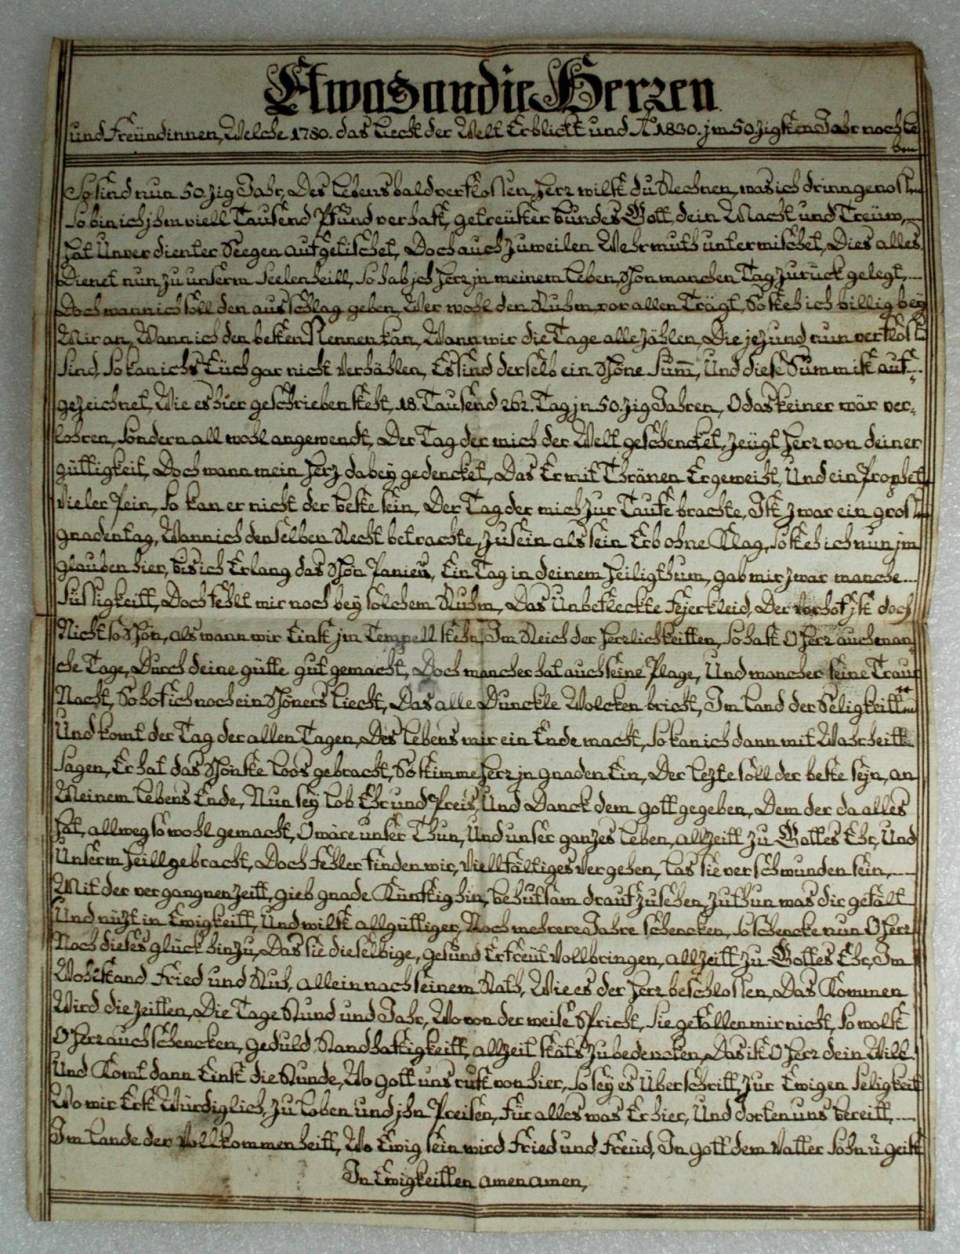 Etwas an die Herren
und Freündinnen, Welche 1780. das Liecht der Welt Erblickt und A. 1830. jm 50.zigsten Jahr noch le
ben
So sind nun 50.zig Jahr, Des Lebens bald verflossen, Herz wilst du Rechnen, was ich drinn genoss
So bin ich jhm viell Tausend Pfund verhaft, getreüster Bundes Gott, dein Macht und Treüw,
Hat Unver dienter Seegen aufgetischet, Doch auch Zuweilen Wehrmuth unter mischet, Dies alles
Dienet nun zu unserm Seelenheill, So hab jch Herr jn meinem Leben, Schon manchen Tag zurück gelegt,
Doch wann ich soll den ausschlag geben, Wer wohl den Ruhm vor allen Trägt, So steh ich billig bey
Mir an, Wann ich den besten Nennen kan, Wann wir die Tage alle zählen, Die jezund nun verflosse
Sind, So kan ichs Eüch gar nicht Verhählen, Es sind derselb ein schöne Sum, Und diese Summ ist auf-
gezeichnet, Wie es hier geschrieben steht, 18. Tausend 262. Tag jn 50.zig Jahren, O das keiner wär ver-
lohren, sondern all wohl angewendt, Der Tag der mich der Welt geschencket, zeügt Herr von deiner
güttigkeit, Doch wann mein Herz dabey gedencket, Das Er mit Thränen Er geweist, Und ein Prophet
Vieler Pein, So kan er nicht der beste sein, Der Tag der mich zur Taufe brachte, Ist zwar ein gross
gnadentag, Wann ich denselben Recht betrachte, zu sein als sein Erb ohne Klag, So steh ich nun jm
glauben hier, bis ich Erlang das schön Panier, Ein Tag in deinem Heiligthum, gab mir zwar manche
Süssigkeitt, Doch fehlt mir noch bey solchem Ruhm, Das Unbefleckte Feierkleid, Der Vorhof jst doch
Nicht so schön, als wann wir Einst jm Tempell stehn, Jm Reich der Herrlichkeitten, So hast O Herr auch man-
che Tage, Durch deine gütte gut gemacht, Doch mancher hat auch seine Plage, Und mancher seine Traur
Nacht, So hof ich noch ein schöners Liecht, Das alle Dunckle Wolcken bricht, Jm Land der Seligkeitten
Und komt der Tag der allen Tagen, Des Lebens mir ein Ende macht, So kan ich dann mit Wahrheitt
Sagen, Er hat das schönste Loos gebracht, So stimme Herz jn gnaden Ein, Der Lezte soll der beste seyn, an
Meinem Lebens Ende, Nun sey Lob Ehr und Preis, Und Danck dem gott gegeben, Dem der da alles
Hat, allweg so wohl gemacht, O wäre unser Thun, Und unser ganzes Leben, allzeitt zu Gottes Ehr, Und
Unserm Heill gebracht, Doch Fehler finden wir, Viellfältiges Vergehen, Las sie verschwunden sein,
Mit der vergangnen zeitt, gieb gnade Künftig hin, behutsam drauf zu sehen, zu thun was dir gefält
Und nüzt in Ewigkeitt, Und wilst allgüttiger, Noch mehrere Jahre schencken, So schencke nun O Herr
Noch dieses glück hinzu, Das sie dieselbige, gesund Erfreüt Vollbringen, allzeitt zu Gottes Ehr, Jm
Wohlstand Fried und Ruh, allein nach seinem Rath, Wie es der Herr beschlossen, Das Kommen
Wird die zeitten, Die Tage Stund und Jahr, Wo von der weise Spricht, sie gefallen mir nicht, So wolst
O Herr auch schencken, geduld Standhaftigkeitt, allzeit stäts zu bedencken, Das ist O Herr dein Will
Und Komt dann Einst die Stunde, Wo gott uns ruft von hier, So sey es Überschritt, Zur Ewigen Seligkeit
Wo wir Erst Würdiglich, zu Loben und jhn Preisen, Für alles was Er hier, Und dorten uns bereitt,
Jm Lande der Vollkommenheitt, Wo Ewig sein wird Fried und Freüd, Jn gott dem Vatter Sohn ü geist
Jn Ewigkeitten amen amen,